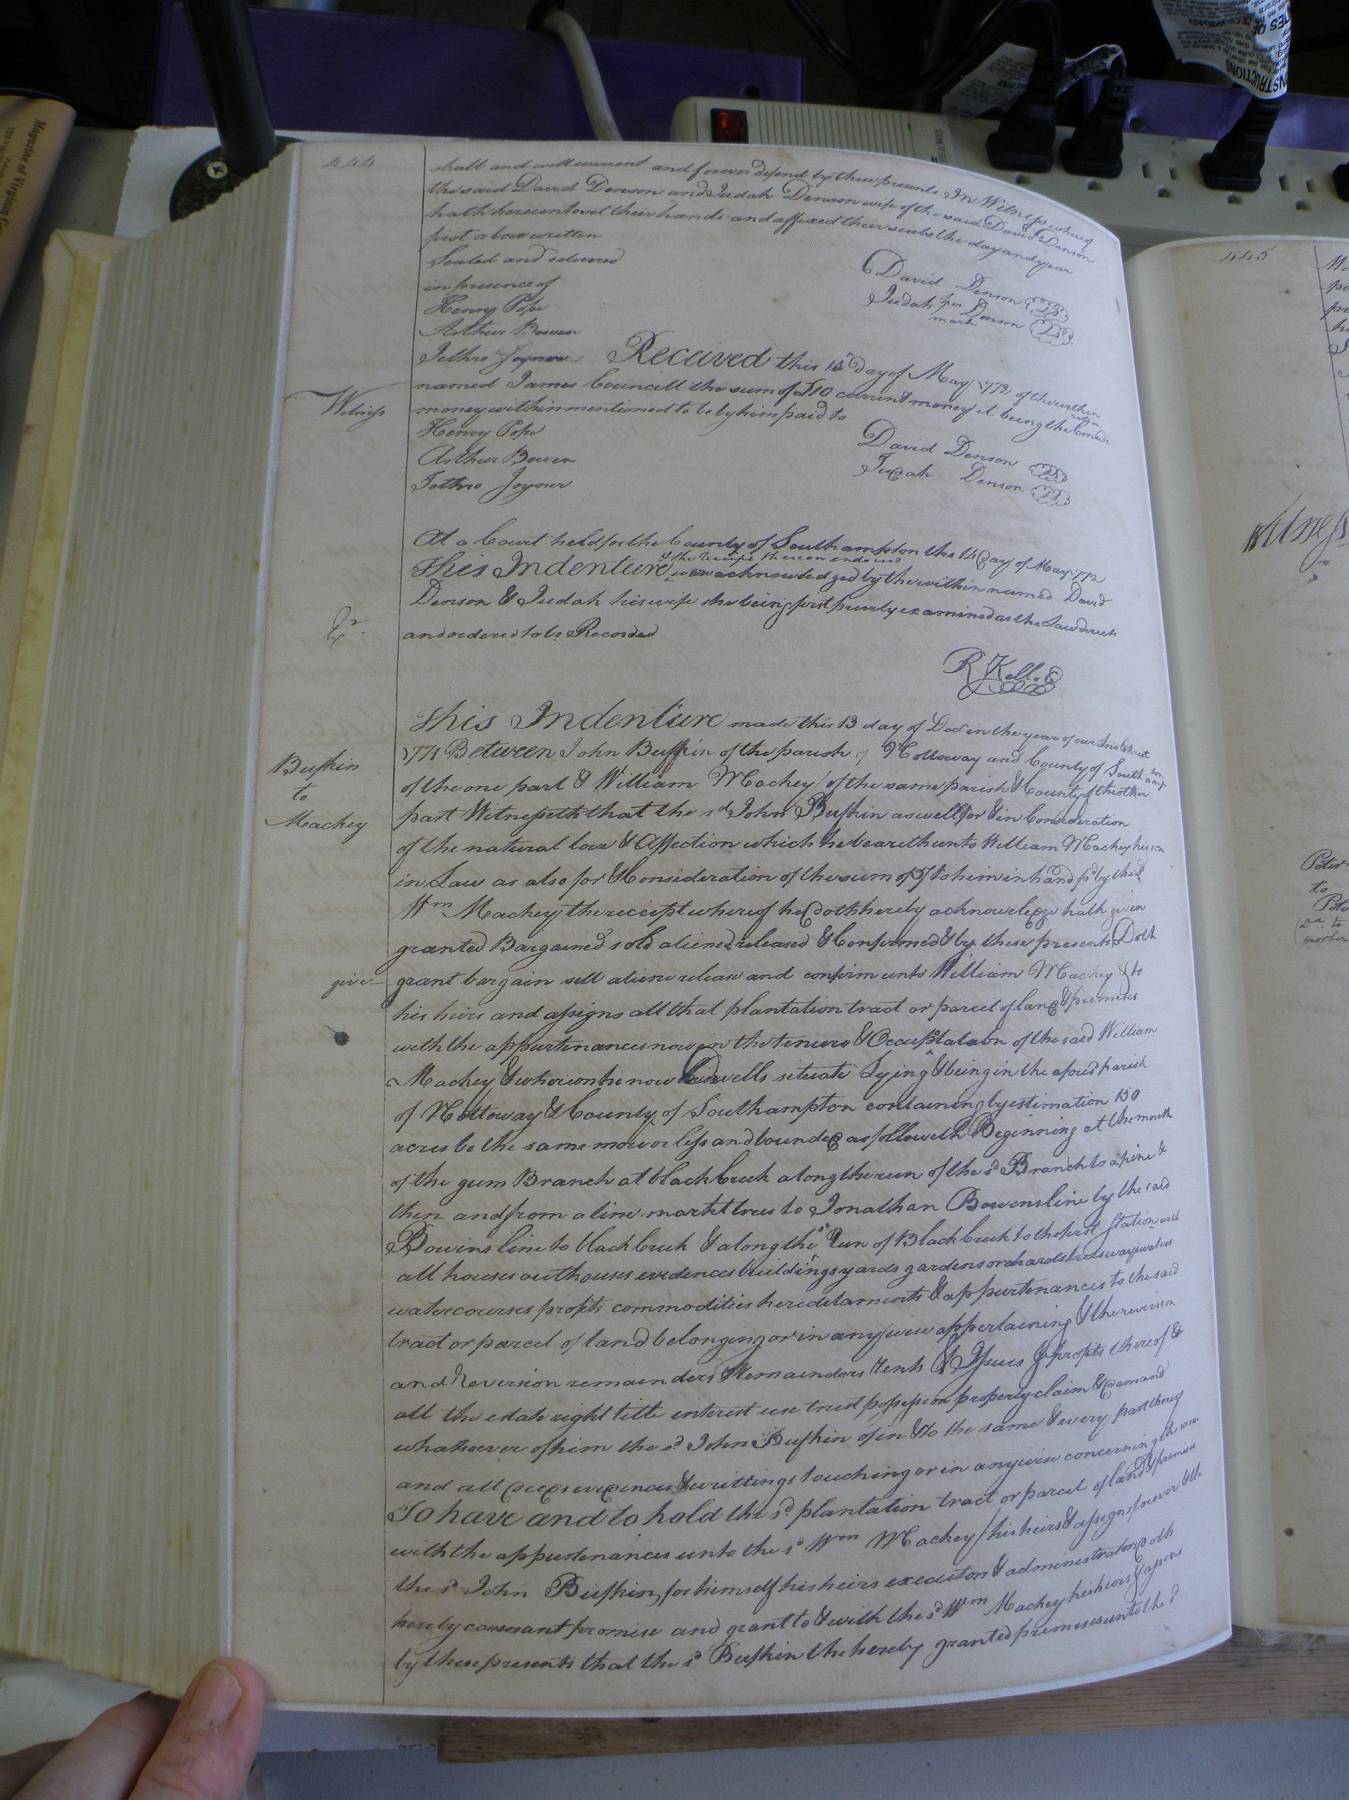 444
shall and will warrant and forever defend by these presents In Witness whereof
the said David Denson and Judah Denson wife of the said David Denson
hath hereunto set their hands and affixed their seals the day and year
first above written
Sealed and delivered
in presence of
Henry Pope
Arthur Bowen
Jethro Joyner
David Denson
Judah her Denson
mark
Received this 14th day of May 1772 of the within
named James Councill the sum of £10 current money it being the
money within mentioned to be by him paid to
Witness
Henry Pope
Arthur Bowen
Jethro Joyner
David Denson
Judah Denson
At a Court held for the County of Southampton the 14 day of May 1772
This Indenture & the receipt thereon endorsed was acknowledged by the within named David
Denson & Judah his wife she being first privily examined as the Law directs
and ordered to be Recorded
Ex.
R Kello
Bufkin
to
Mackey
This Indenture made this 13 day of Decr in the year of our Lord Christ
1771 Between John Bufkin of the parish of Nottoway and County of Southampton
of the one part & William Mackey of the same parish & County of the other
part Witnesseth that the sd John Bufkin as well for & in Consideration
of the natural love & Affection which he beareth unto William Mackey his son
in Law as also for & Consideration of the sum of 5/ to him in hand pd by the sd
Wm Mackey the receipt whereof he doth hereby acknowledge hath given
granted Bargained sold aliened released & Confirmed & by these presents Doth
give
grant bargain sell aliene release and confirm unto William Mackey & to
his heirs and assigns all that plantation tract or parcel of land & premises
with the appurtenances now in the tenure & Occupatation of the said William
Mackey & whereon he now Dwells situate Lying & being in the aforesd parish
of Nottoway & County of Southampton containing by estimation 150
acres be the same more or less and bounded as followeth Beginning at the mouth
of the gum Branch at black Creek along the run of the sd Branch to a pine &
then and from a line markt trees to Jonathan Bowens line by the said
Bowins line to black Creek & along the sd Run of Black Creek to the first Station with
all houses outhouses evidences buildings yards gardens orchards ways waters
watercourses profits commodities hereditaments & appurtenances to the said
tract or parcel of land belonging or in any wise appertaining & the reversion
and Reversion remainders & Remainders rents & Issues & profits thereof &
all the estate right title interest use trust possession property claim & demand
whatsoever of him the sd John Bufkin of in & to the same & every part thereof
and all deeds evidences & writtings touching or in anywise concerning the same
To have and to hold the sd plantation tract or parcel of land & premises
with the appurtenances unto the sd Wm Mackey his heirs & assigns forever & the
the sd John Bufkin for himself his heirs executors & administrators doth
hereby covenant promise and grant to & with the sd Wm Mackey his heirs & assigns
by these presents that the sd Bufkin the hereby granted premises unto the sd
445
Witness
Peter
to